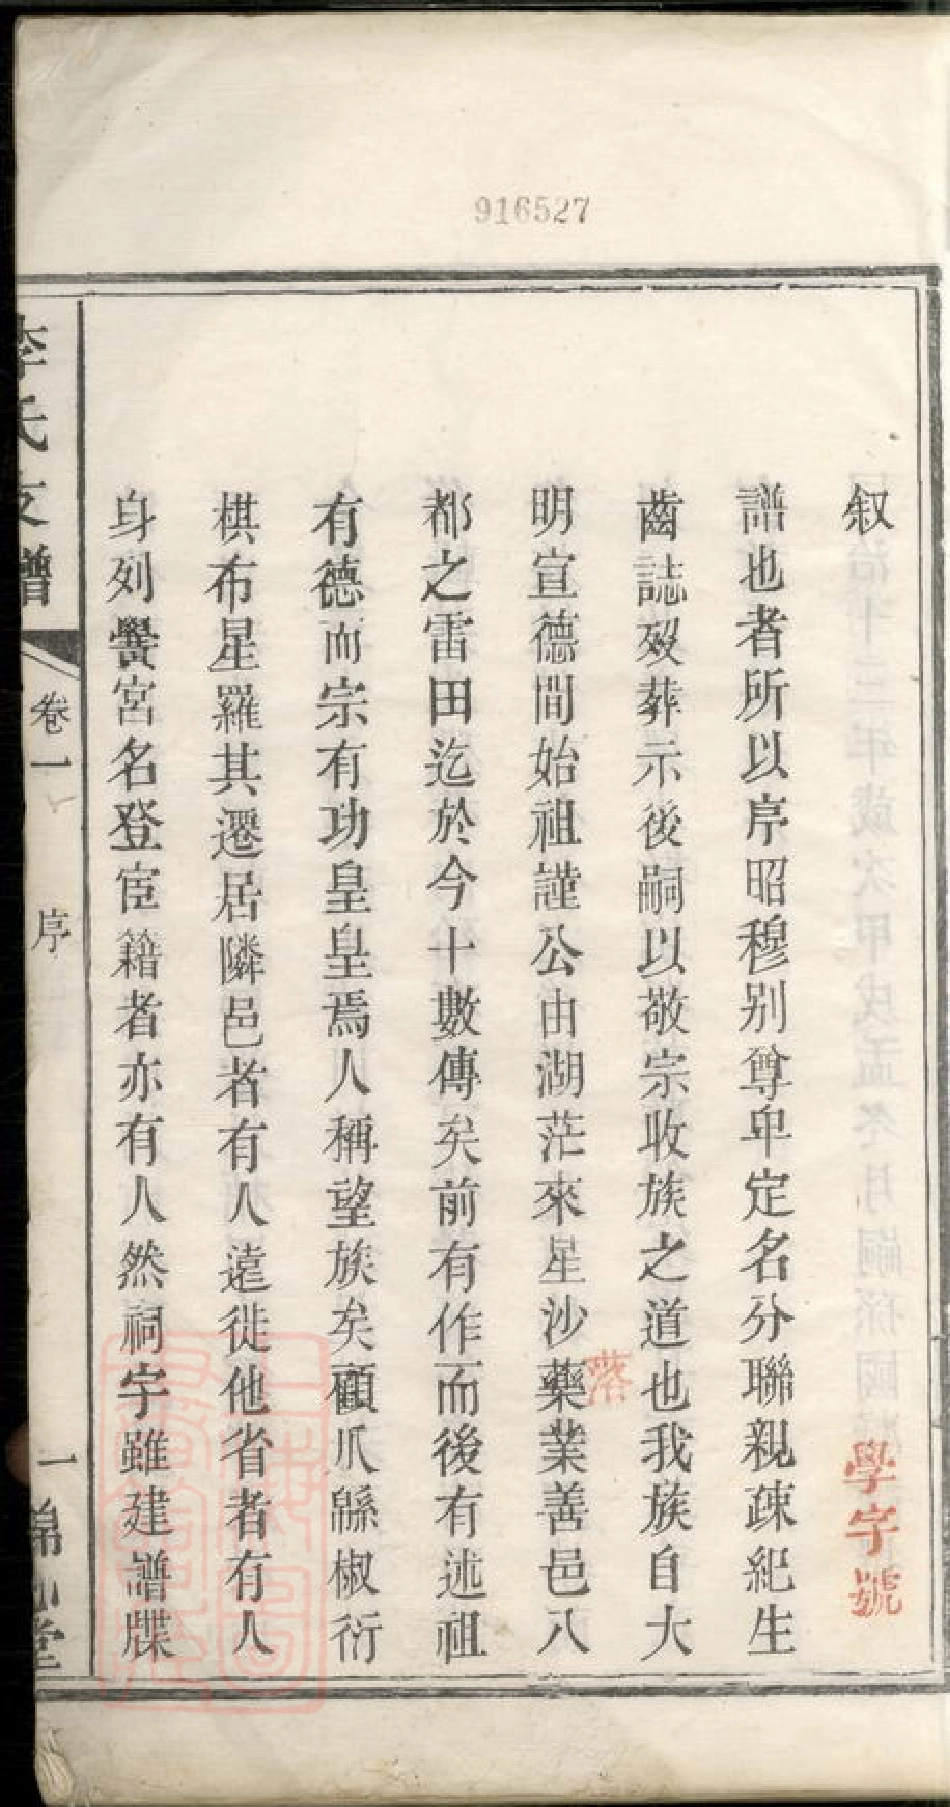 916527
叙
學字號
譜也者所以序昭穆别尊卑定名分聯親疎紀生
齒誌歿葬示後嗣以敬宗收族之道也我族自大
明宣德間始祖謹公由湖茫來星沙藥業善邑八
落
都之雷田迄於今十數傳矣前有作而後有述祖
有德而宗有功皇皇焉人稱望族矣顧爪緜椒衍
棋布星羅其遷居隣邑者有人遠徙他省者有人
身列黌宮名登宦籍者亦有人然祠宇雖建譜牒
李氏支譜 卷一 序 一 堂